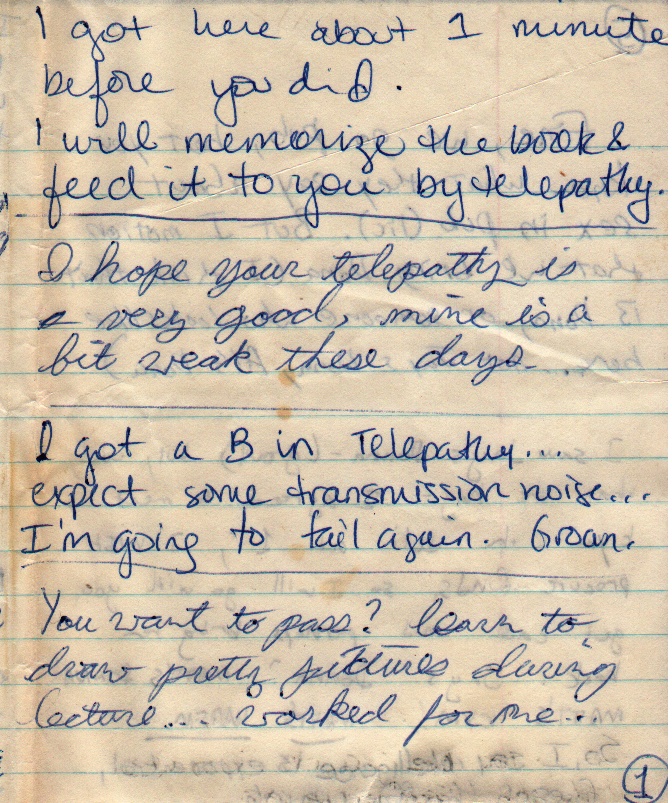 I got here about 1 minute
before you did.
I will memorize the book &
feed it to you by telepathy.
I hope your telepathy is
very good, mine is a
bit weak these days.
I got a B in Telepathy...
expect some transmission noise...
I'm going to fail again. Groan.
You want to pass? learn to
draw pretty pictures during
lecture... worked for me...
1